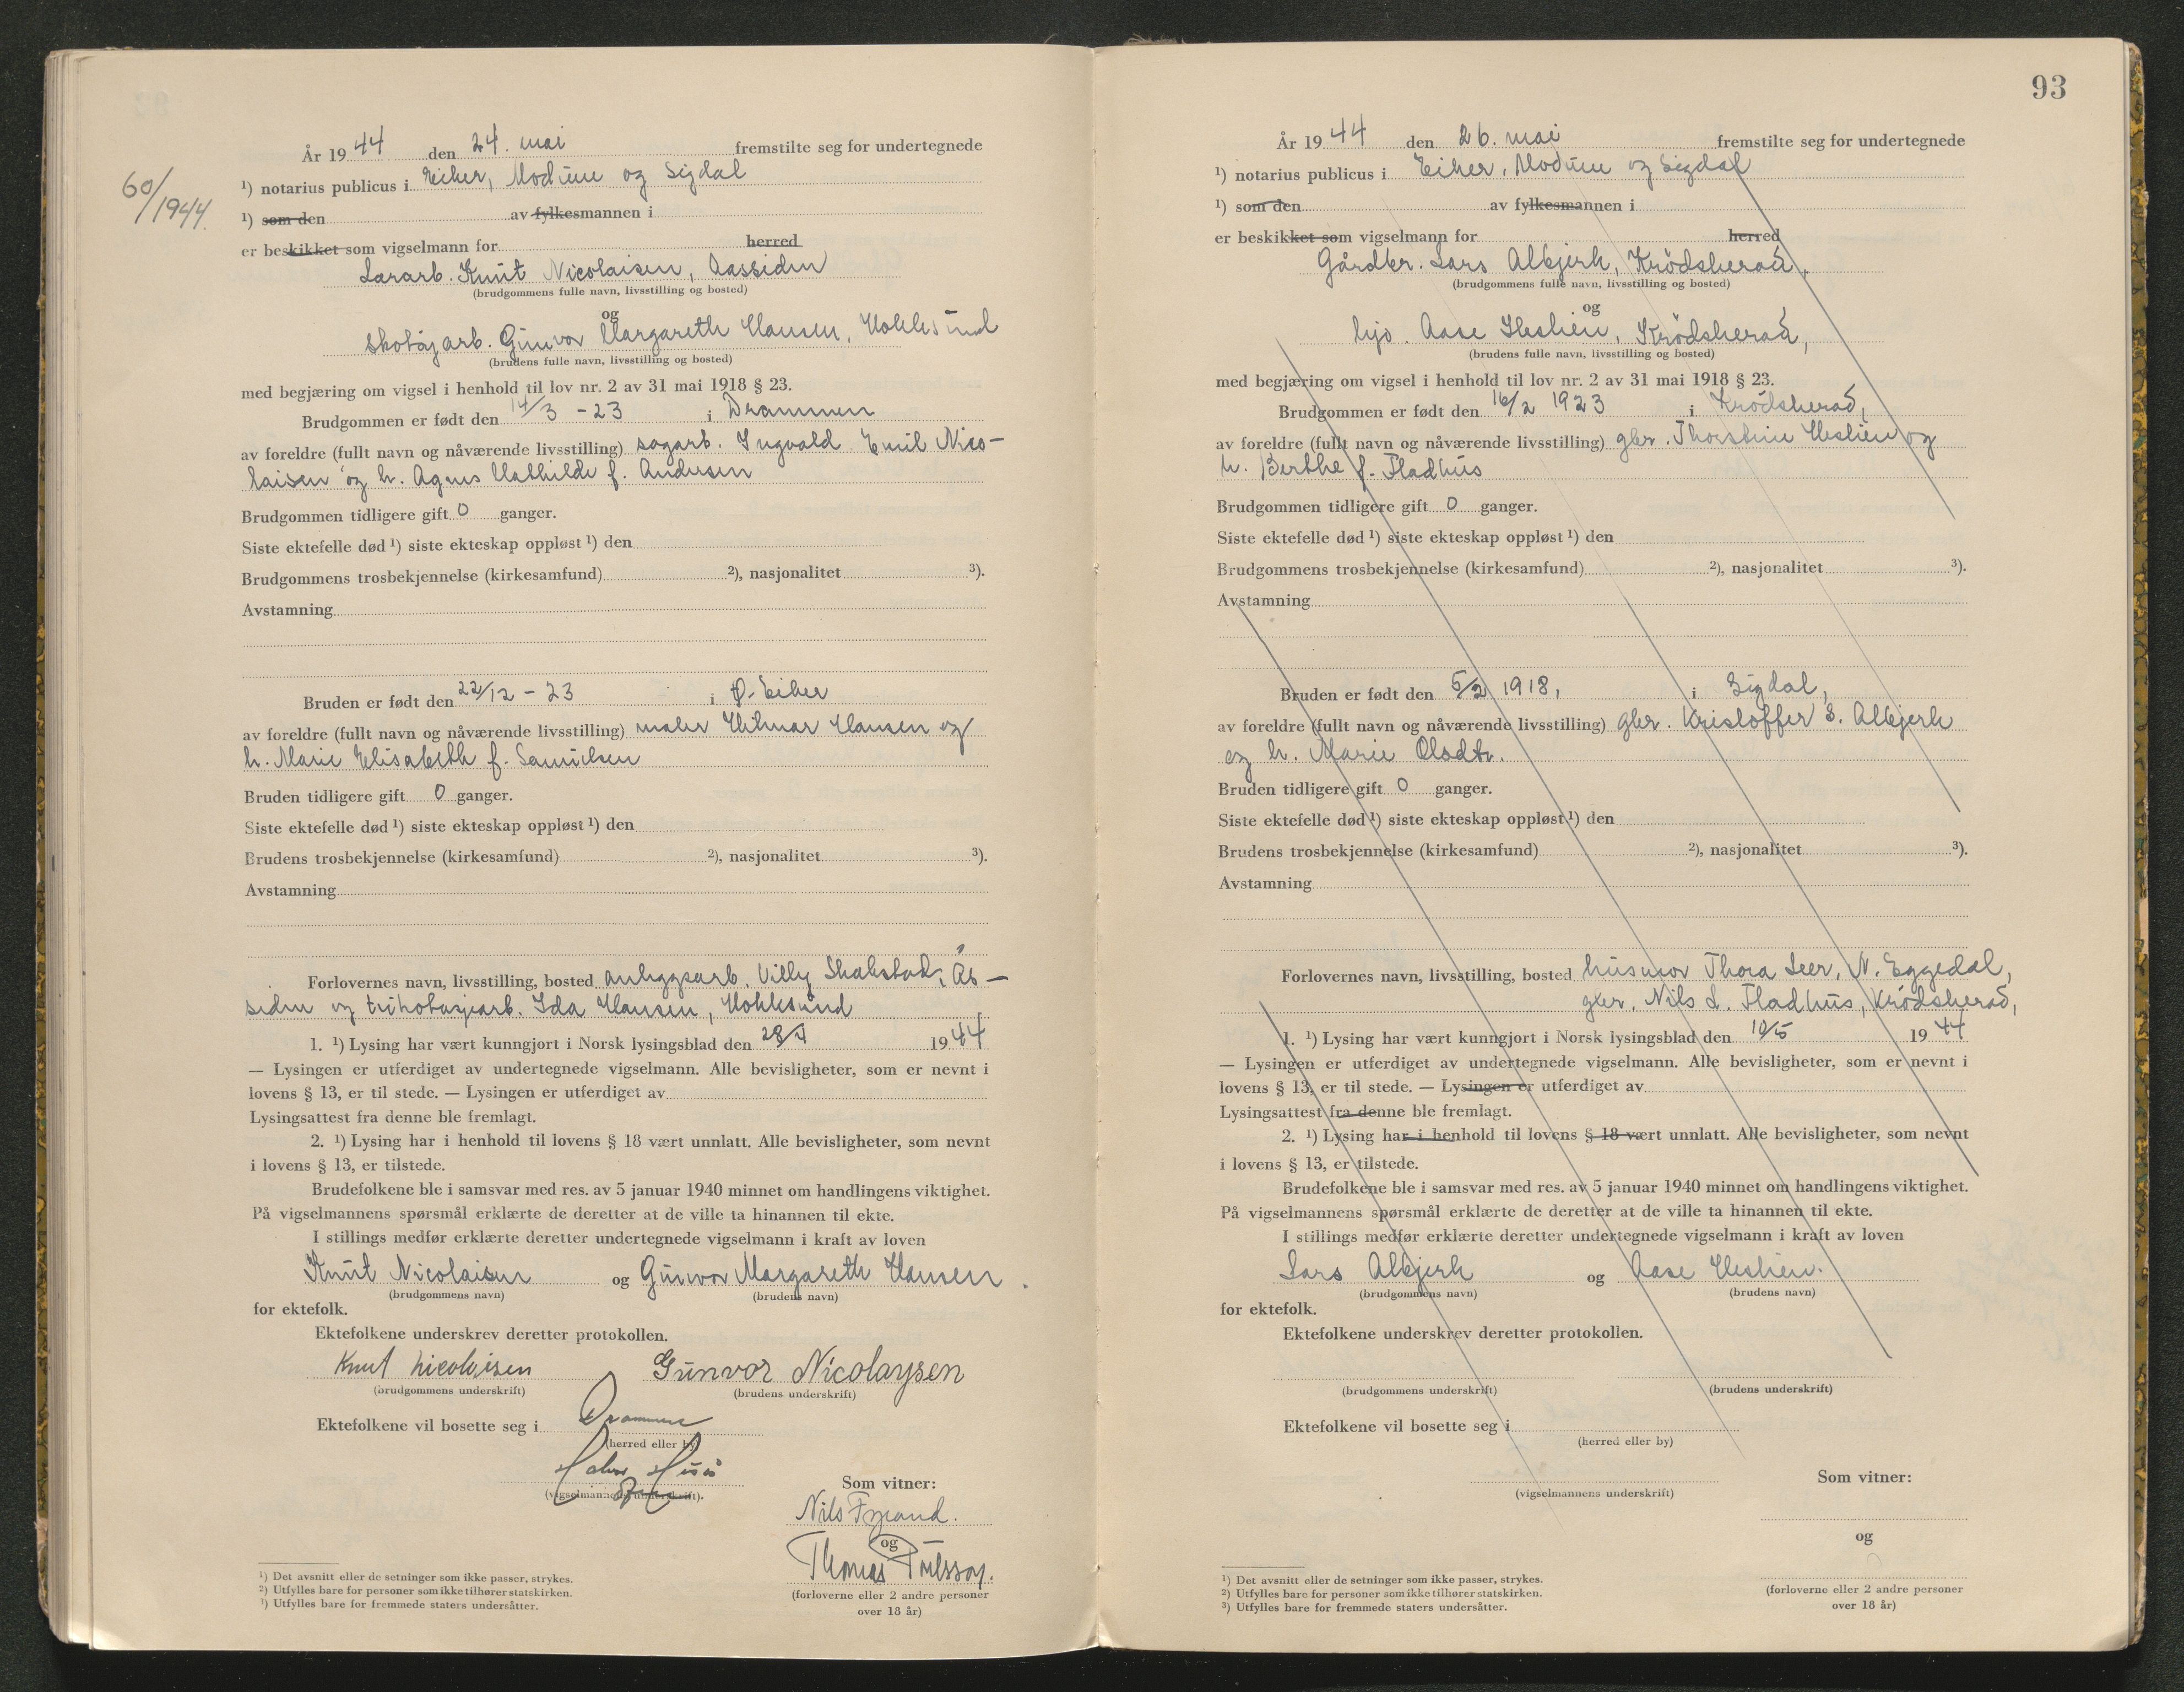 60/1944.
År 1944 den 24. mai fremstilte seg for undertegnede
¹) notarius publicus i Eiker, Modum og Sigdal
¹) som den av fylkesmannen i
er beskikket som vigselmann for herred
Lararb. Knut Nicolaisen, Aassiden
(brudgommens fulle navn, livsstilling og bosted)
og
skotøjarb. Gunvor Margareth Hansen, Hokksund
(brudens fulle navn, livsstilling og bosted)
med begjæring om vigsel i henhold til lov nr. 2 av 31 mai 1918 § 23.
Brudgommen er født den 14/3 - 23 i Drammen
av foreldre (fullt navn og nåværende livsstilling) sagarb. Ingvald Emil Nico-
laisen og h. Agnes Mathilde f. Andersen
Brudgommen tidligere gift 0 ganger.
Siste ektefelle død ¹) siste ekteskap oppløst ¹) den
Brudgommens trosbekjennelse (kirkesamfund) ²), nasjonalitet ³).
Avstamning
Bruden er født den 22/12 - 23 i Ø. Eiker
av foreldre (fullt navn og nåværende livsstilling) maler Hilmar Hansen og
h. Marie Elisabeth f. Samuelsen
Bruden tidligere gift 0 ganger.
Siste ektefelle død ¹) siste ekteskap oppløst ¹) den
Brudens trosbekjennelse (kirkesamfund) ²), nasjonalitet ³).
Avstamning
Forlovernes navn, livsstilling, bosted anleggsarb. Villy Skalstad, Ås-
siden og trikotasjearb. Ida Hansen, Hokksund
1. ¹) Lysing har vært kunngjort i Norsk lysingsblad den 28/4 1944
— Lysingen er utferdiget av undertegnede vigselmann. Alle bevisligheter, som er nevnt i
lovens § 13, er til stede. — Lysingen er utferdiget av
Lysingsattest fra denne ble fremlagt.
2. ¹) Lysing har i henhold til lovens § 18 vært unnlatt. Alle bevisligheter, som nevnt
i lovens § 13, er tilstede.
Brudefolkene ble i samsvar med res. av 5 januar 1940 minnet om handlingens viktighet.
På vigselmannens spørsmål erklærte de deretter at de ville ta hinannen til ekte.
I stillings medfør erklærte deretter undertegnede vigselmann i kraft av loven
Knut Nicolaisen og Gunvor Margareth Hansen.
(brudgommens navn) (brudens navn)
for ektefolk.
Ektefolkene underskrev deretter protokollen.
Knut Nicolaisen Gunvor Nicolaysen
(brudgommens underskrift) (brudens underskrift)
Ektefolkene vil bosette seg i Drammen
(herred eller by)
(vigselmannens underskrift).
Som vitner:
Nils Fyrand.
og
Thomas
(forloverne eller 2 andre personer
over 18 år)
¹) Det avsnitt eller de setninger som ikke passer, strykes.
²) Utfylles bare for personer som ikke tilhører statskirken.
³) Utfylles bare for fremmede staters undersåtter.
93
År 1944 den 26. mai fremstilte seg for undertegnede
¹) notarius publicus i Eiker, Modum og Sigdal
¹) som den av fylkesmannen i
er beskikket som vigselmann for herred
Gårdbr. Lars Albjerk, Krødsherad.
(brudgommens fulle navn, livsstilling og bosted)
og
hjv. Aase Heslien, Krødsherad,
(brudens fulle navn, livsstilling og bosted)
med begjæring om vigsel i henhold til lov nr. 2 av 31 mai 1918 § 23.
Brudgommen er født den 16/2 1923 i Krødsherad,
av foreldre (fullt navn og nåværende livsstilling) gbr. Thorstein Heslien og
h. Berthe f. Fladhus
Brudgommen tidligere gift 0 ganger.
Siste ektefelle død ¹) siste ekteskap oppløst ¹) den
Brudgommens trosbekjennelse (kirkesamfund) ²), nasjonalitet ³).
Avstamning
Bruden er født den 5/2 1918, i Sigdal,
av foreldre (fullt navn og nåværende livsstilling) gbr. Kristoffer S. Albjerk
og h. Marie Olsdtr.
Bruden tidligere gift 0 ganger.
Siste ektefelle død ¹) siste ekteskap oppløst ¹) den
Brudens trosbekjennelse (kirkesamfund) ²), nasjonalitet ³).
Avstamning
Forlovernes navn, livsstilling, bosted husmor Thora Leer, N. Eggedal,
gbr. Nils L. Fladhus, Krødsherad,
1. ¹) Lysing har vært kunngjort i Norsk lysingsblad den 10/5 1944
— Lysingen er utferdiget av undertegnede vigselmann. Alle bevisligheter, som er nevnt i
lovens § 13, er til stede. — Lysingen er utferdiget av
Lysingsattest fra denne ble fremlagt.
2. ¹) Lysing har i henhold til lovens § 18 vært unnlatt. Alle bevisligheter, som nevnt
i lovens § 13, er tilstede.
Brudefolkene ble i samsvar med res. av 5 januar 1940 minnet om handlingens viktighet.
På vigselmannens spørsmål erklærte de deretter at de ville ta hinannen til ekte.
I stillings medfør erklærte deretter undertegnede vigselmann i kraft av loven
Lars Albjerk og Aase Heslien.
(brudgommens navn) (brudens navn)
for ektefolk.
Ektefolkene underskrev deretter protokollen.
(brudgommens underskrift) (brudens underskrift)
Ektefolkene vil bosette seg i
(herred eller by)
(vigselmannens underskrift)
Som vitner:
og
(forloverne eller 2 andre personer
over 18 år)
¹) Det avsnitt eller de setninger som ikke passer, strykes.
²) Utfylles bare for personer som ikke tilhører statskirken.
³) Utfylles bare for fremmede staters undersåtter.